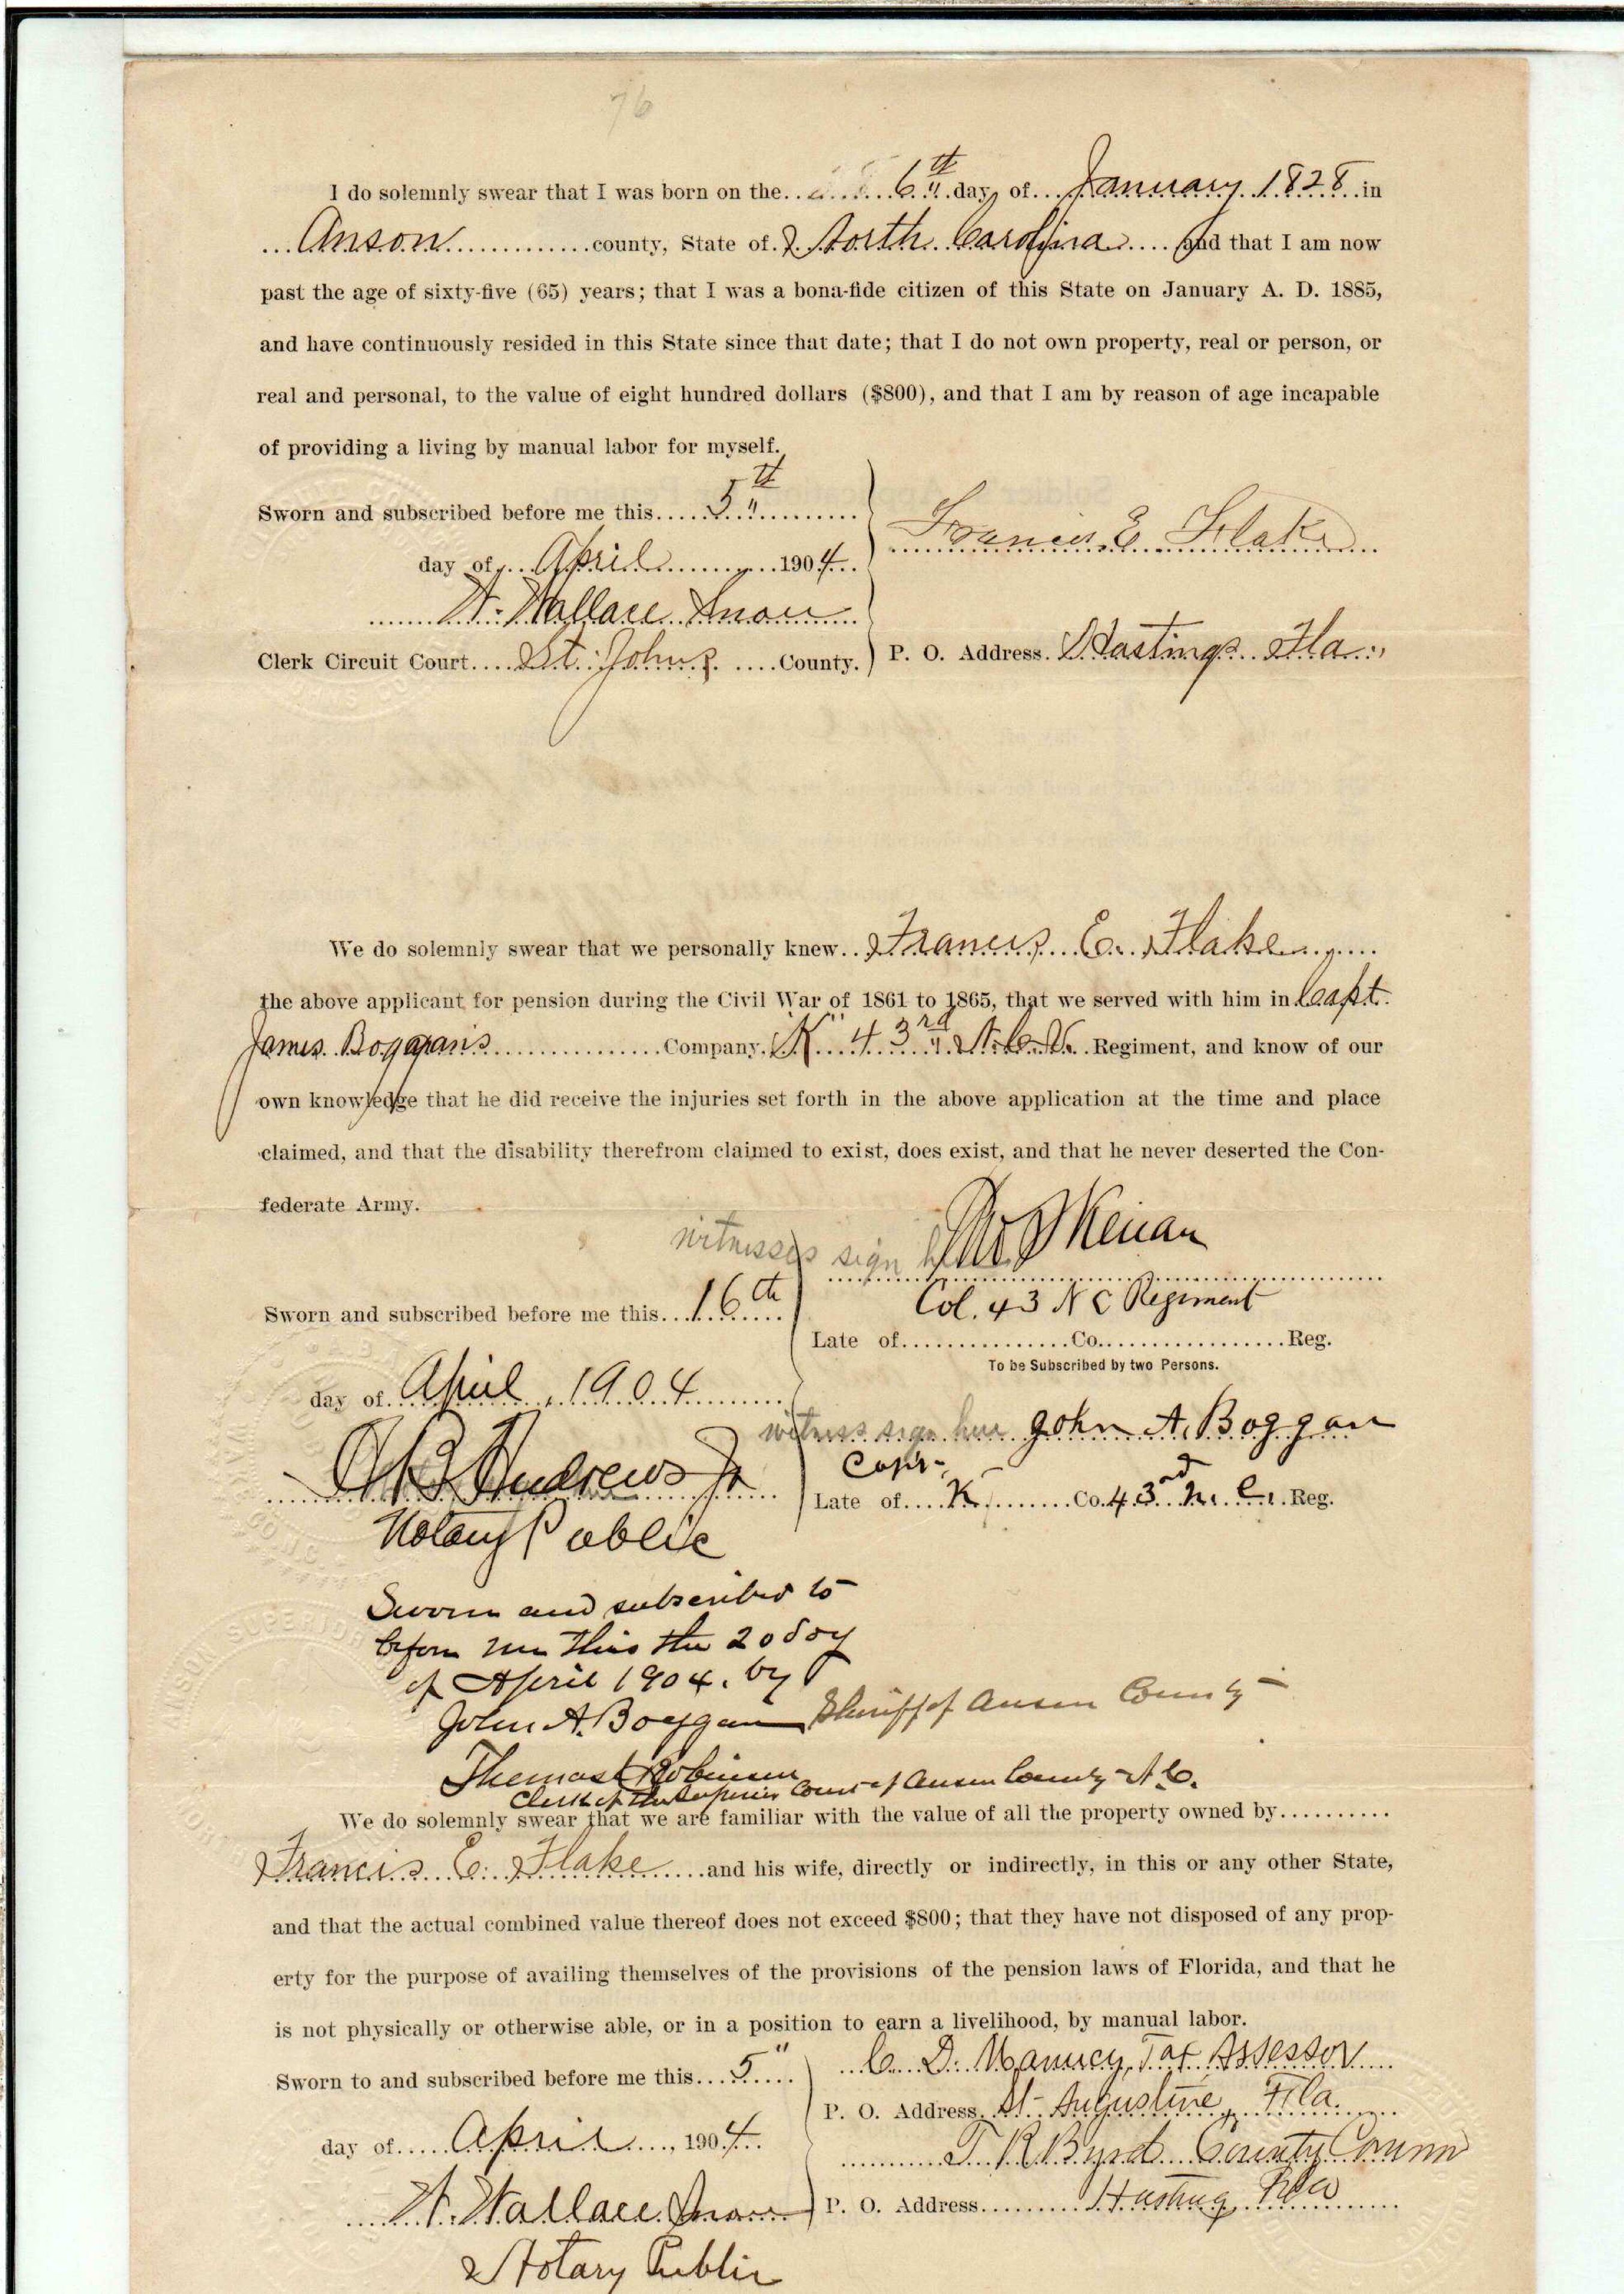 76
I do solemnly swear that I was born on the 6th day of January 1828 in
Anson county, State of North Carolina and that I am now
past the age of sixty-five (65) years; that I was a bona-fide citizen of this State on January A. D. 1885,
and have continuously resided in this State since that date; that I do not own property, real or person, or
real and personal, to the value of eight hundred dollars ($800), and that I am by reason of age incapable
of providing a living by manual labor for myself.
Sworn and subscribed before me this 5th
day of April 1904
Francis E Flake
W. Wallace Snow
Clerk Circuit Court St. Johns County.
P. O. Address. Hastings Fla.
We do solemnly swear that we personally knew Francis E. Flake
the above applicant for pension during the Civil War of 1861 to 1865, that we served with him in Capt.
James Boggan's Company, "K" 43rd N.C. Regiment, and know of our
own knowledge that he did receive the injuries set forth in the above application at the time and place
claimed, and that the disability therefrom claimed to exist, does exist, and that he never deserted the Con-
federate Army.
witnesses sign Kenan
Col. 43 N C Regiment
Sworn and subscribed before me this 16th
Late of Co. Reg.
To be Subscribed by two Persons.
day of April, 1904
witness sign here John A. Boggan
A B Andrews Jr
Capt-
Late of K Co. 43rd N. C. Reg.
Notary Public
Sworn and subscribed to
before me this the 20 day
of April 1904. by
John A. Boggan Sheriff of Anson County
Thomas Robinson
Clerk of the Superior Court of Anson County N.C.
We do solemnly swear that we are familiar with the value of all the property owned by
Francis E. Flake and his wife, directly or indirectly, in this or any other State,
and that the actual combined value thereof does not exceed $800; that they have not disposed of any prop-
erty for the purpose of availing themselves of the provisions of the pension laws of Florida, and that he
is not physically or otherwise able, or in a position to earn a livelihood, by manual labor.
Sworn to and subscribed before me this 5"
C. D. Manucy, Tax Assessor
P. O. Address. St. Augustine, Fla.
day of April, 1904
T R Byrd County Comm
W. Wallace Snow
P. O. Address Hastings Fla
Notary Public